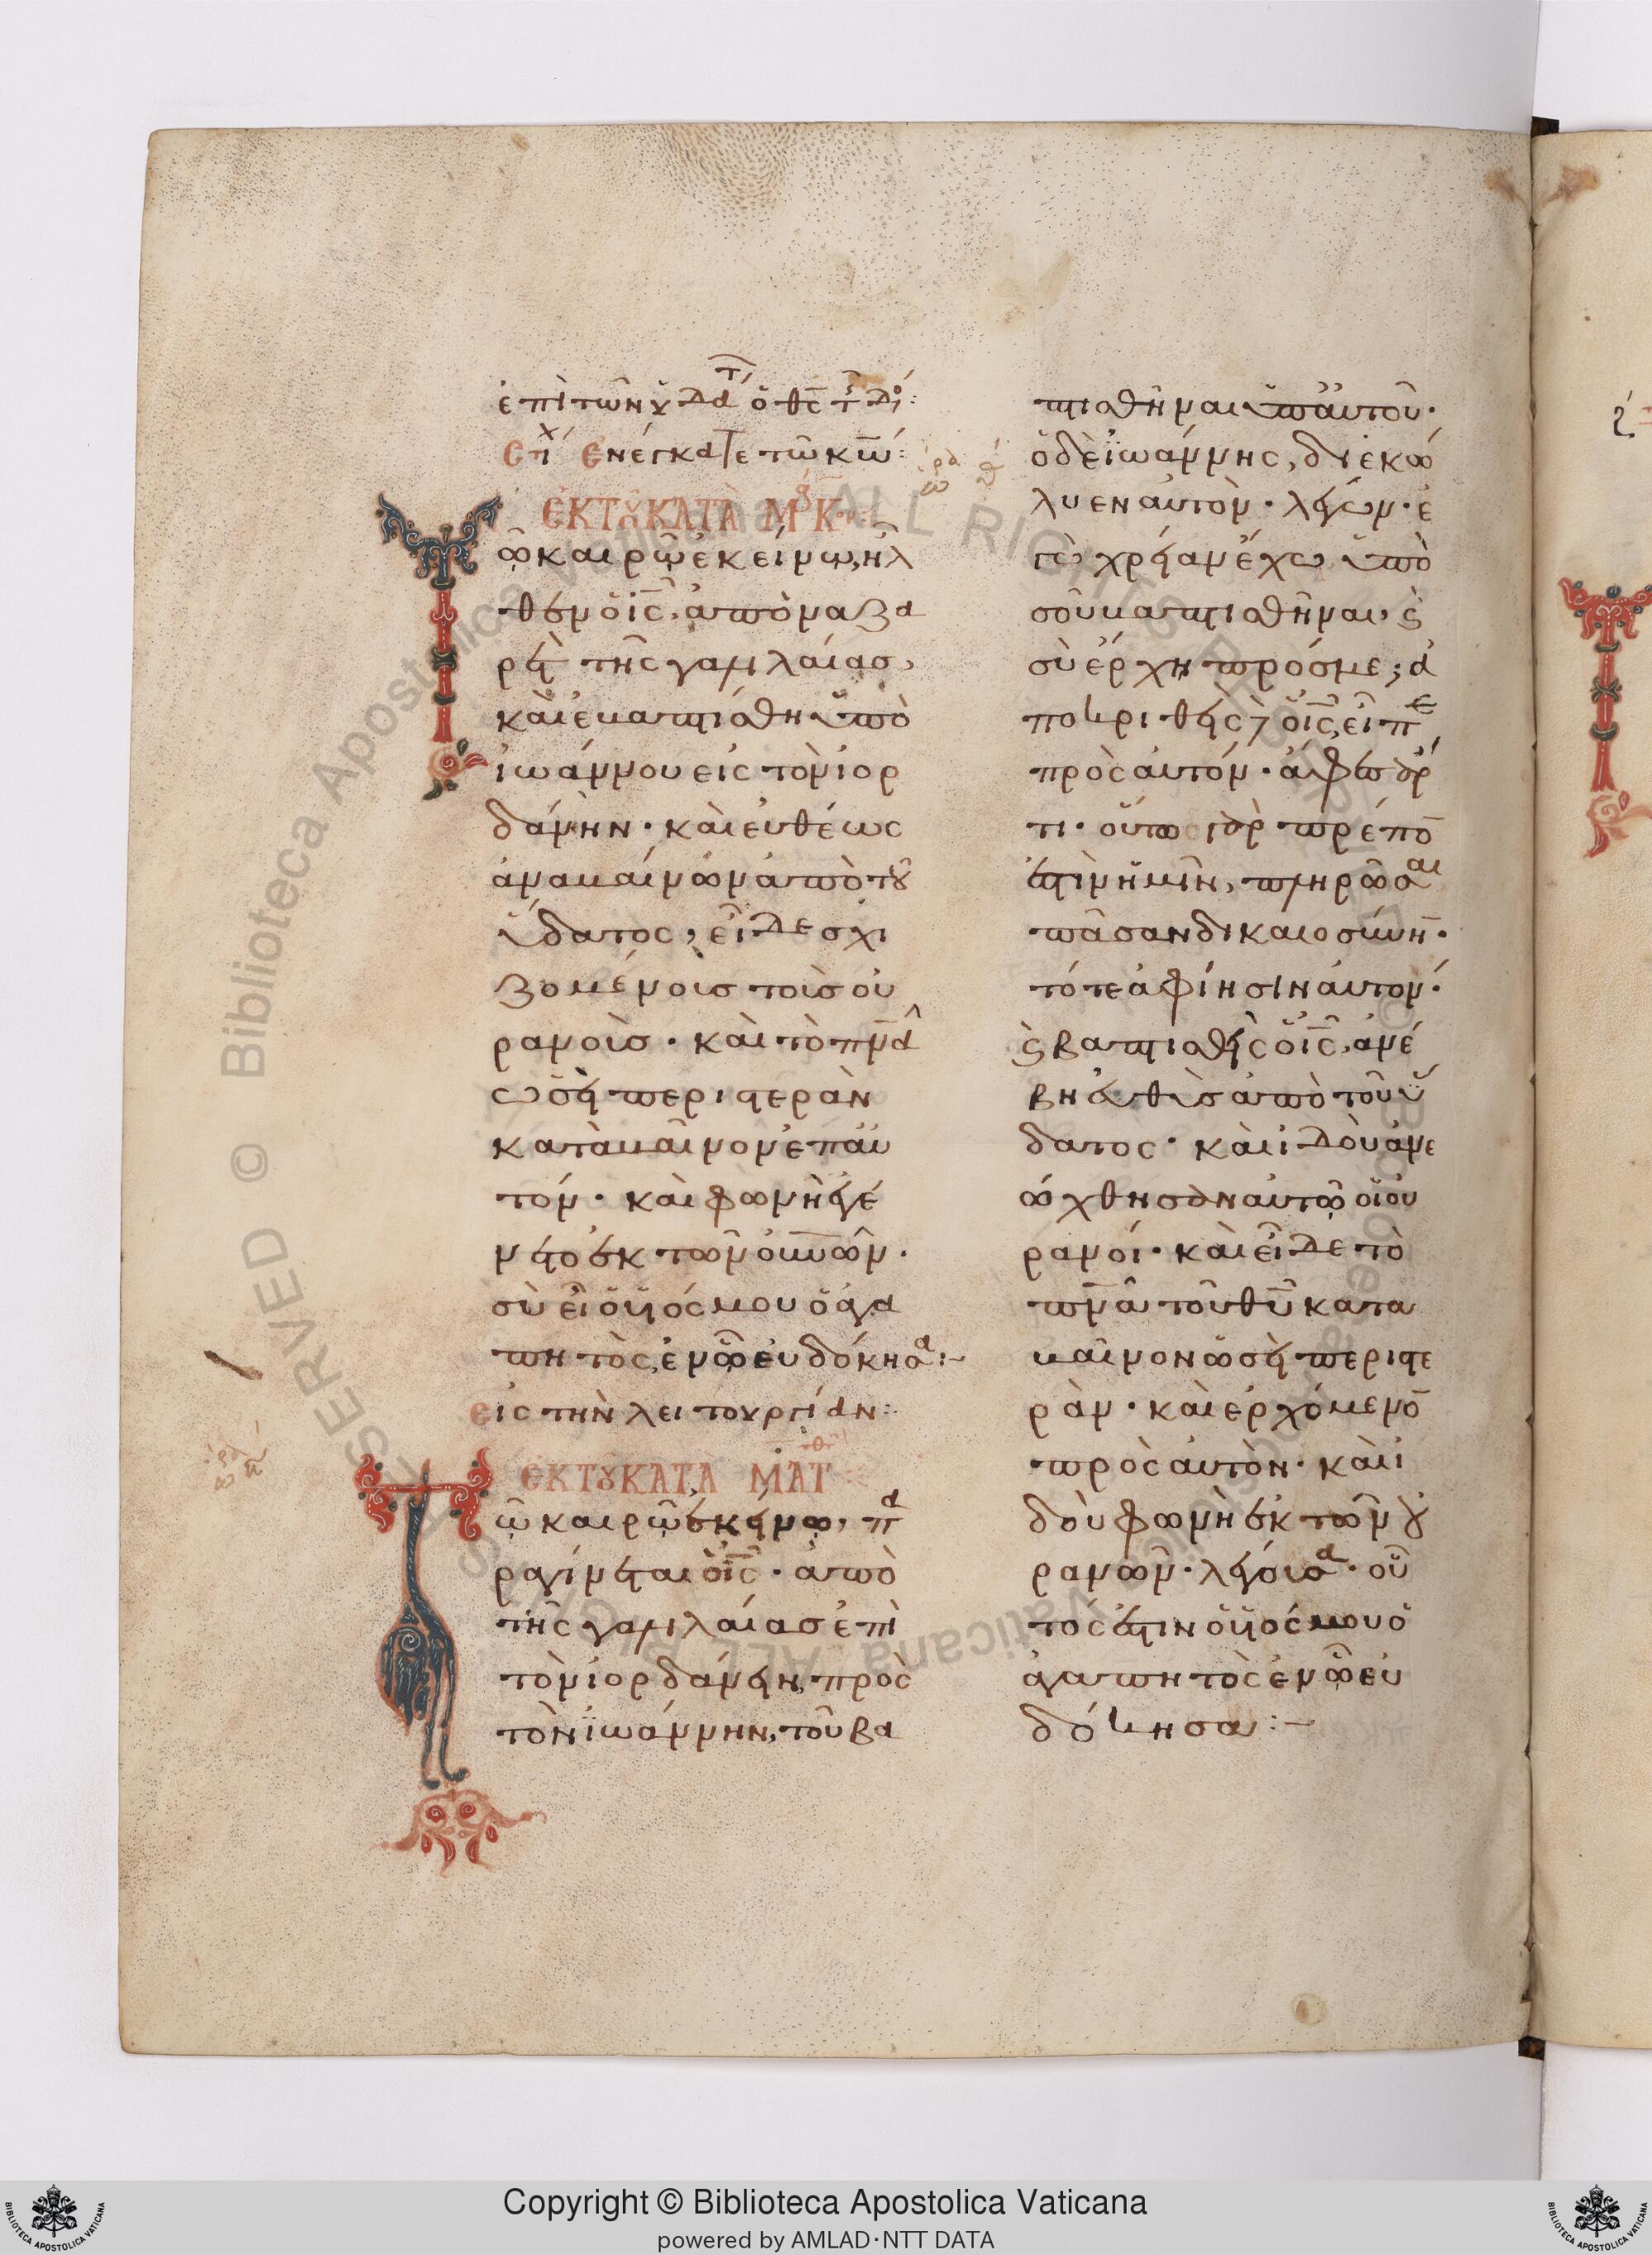 ἐπὶ τῶν ὑδάτ ὁ θς τ δό:
Στί Ενέγκατε τῶ κῶ:
ἐκ τοῦ κατὰ Μρκ
ῶ καιρῶ ἐκείνω, ἦλ
θεν ὁ ις, ἀπὸ ναζα
ρὲτ τῆς γαλιλαίασ,
καὶ ἐβαπτίσθη ὑπὸ
ἰωάννου εἰς τὸν ἰορ
δάνην · καὶ εὐθέως
ἀναβαίνων ἀπὸ τοῦ
ὕδατος, εἶδε σχι
ζομένους τοὺσ οὐ
ρανοὺσ · καὶ τὸ πνα
ὡσεὶ περιστερὰν
καταβαῖνον ἐπ' αὐ
τόν · καὶ φωνὴ ἐγέ
νετο ἐκ τῶν οὐνῶν ·
σὺ εἶ ὁ υἱός μου ὁ ἀγα
πητὸς, ἐν ᾧ εὐδόκησα:~
εἰς τὴν λειτουργίαν:
ἐκ τοῦ κατὰ Ματθ
ῶ καιρῶ ἐκείνω, πα
ραγίνεται ὁ ις · ἀπὸ
τῆς γαλιλαίασ ἐπὶ
τὸν ἰορδάνην, πρὸς
τὸν ἰωάννην, τοῦ βα
πτισθῆναι ὑπ' αὐτοῦ ·
ὁ δὲ ἰωάννης, διεκώ
λυεν αὐτὸν · λέγων · ἐ
γὼ χρείαν ἔχω ὑπὸ
σοῦ βαπτισθῆναι, ϗ
σὺ ἔρχη πρόσ με; ἀ
ποκριθεὶς δὲ ὁ ις, εἶπε
πρὸς αὐτόν · ἄφεσ ἄρ
τι · οὕτω γὰρ πρέπο
ἐστὶν ἡμῖν, πληρῶσαι
πᾶσαν δικαιοσύνη ·
τότε ἀφίησιν αὐτον ·
ϗ βαπτισθεὶς ὁ ις, ἀνέ
βη εὐθὺσ ἀπὸ τοῦ ὕ
δατος · καὶ ἰδοὺ ἀνε
ώχθησαν αὐτῶ οἱ οὐ
ρανοί · καὶ εἶδε τὸ
πνα τοῦ θυ κατα
βαῖνον ὡσεὶ περιστε
ρὰν · καὶ ἐρχόμενο
πρὸς αὐτὸν · καὶ ἰ
δοὺ φωνὴ ἐκ τῶν οὐ
ρανῶν · λέγουσα · οὗ
τός ἐστιν ὁ υἱός μου ὁ
ἀγαπητὸς ἐν ᾧ εὐ
δόκησα:~
Biblioteca Apostolica Vaticana ALL RIGHTS RESERVED ©
Copyright © Biblioteca Apostolica Vaticana
powered by AMLAD·NTT DATA
BIBLIOTECA APOSTOLICA VATICANA
BIBLIOTECA APOSTOLICA VATICANA